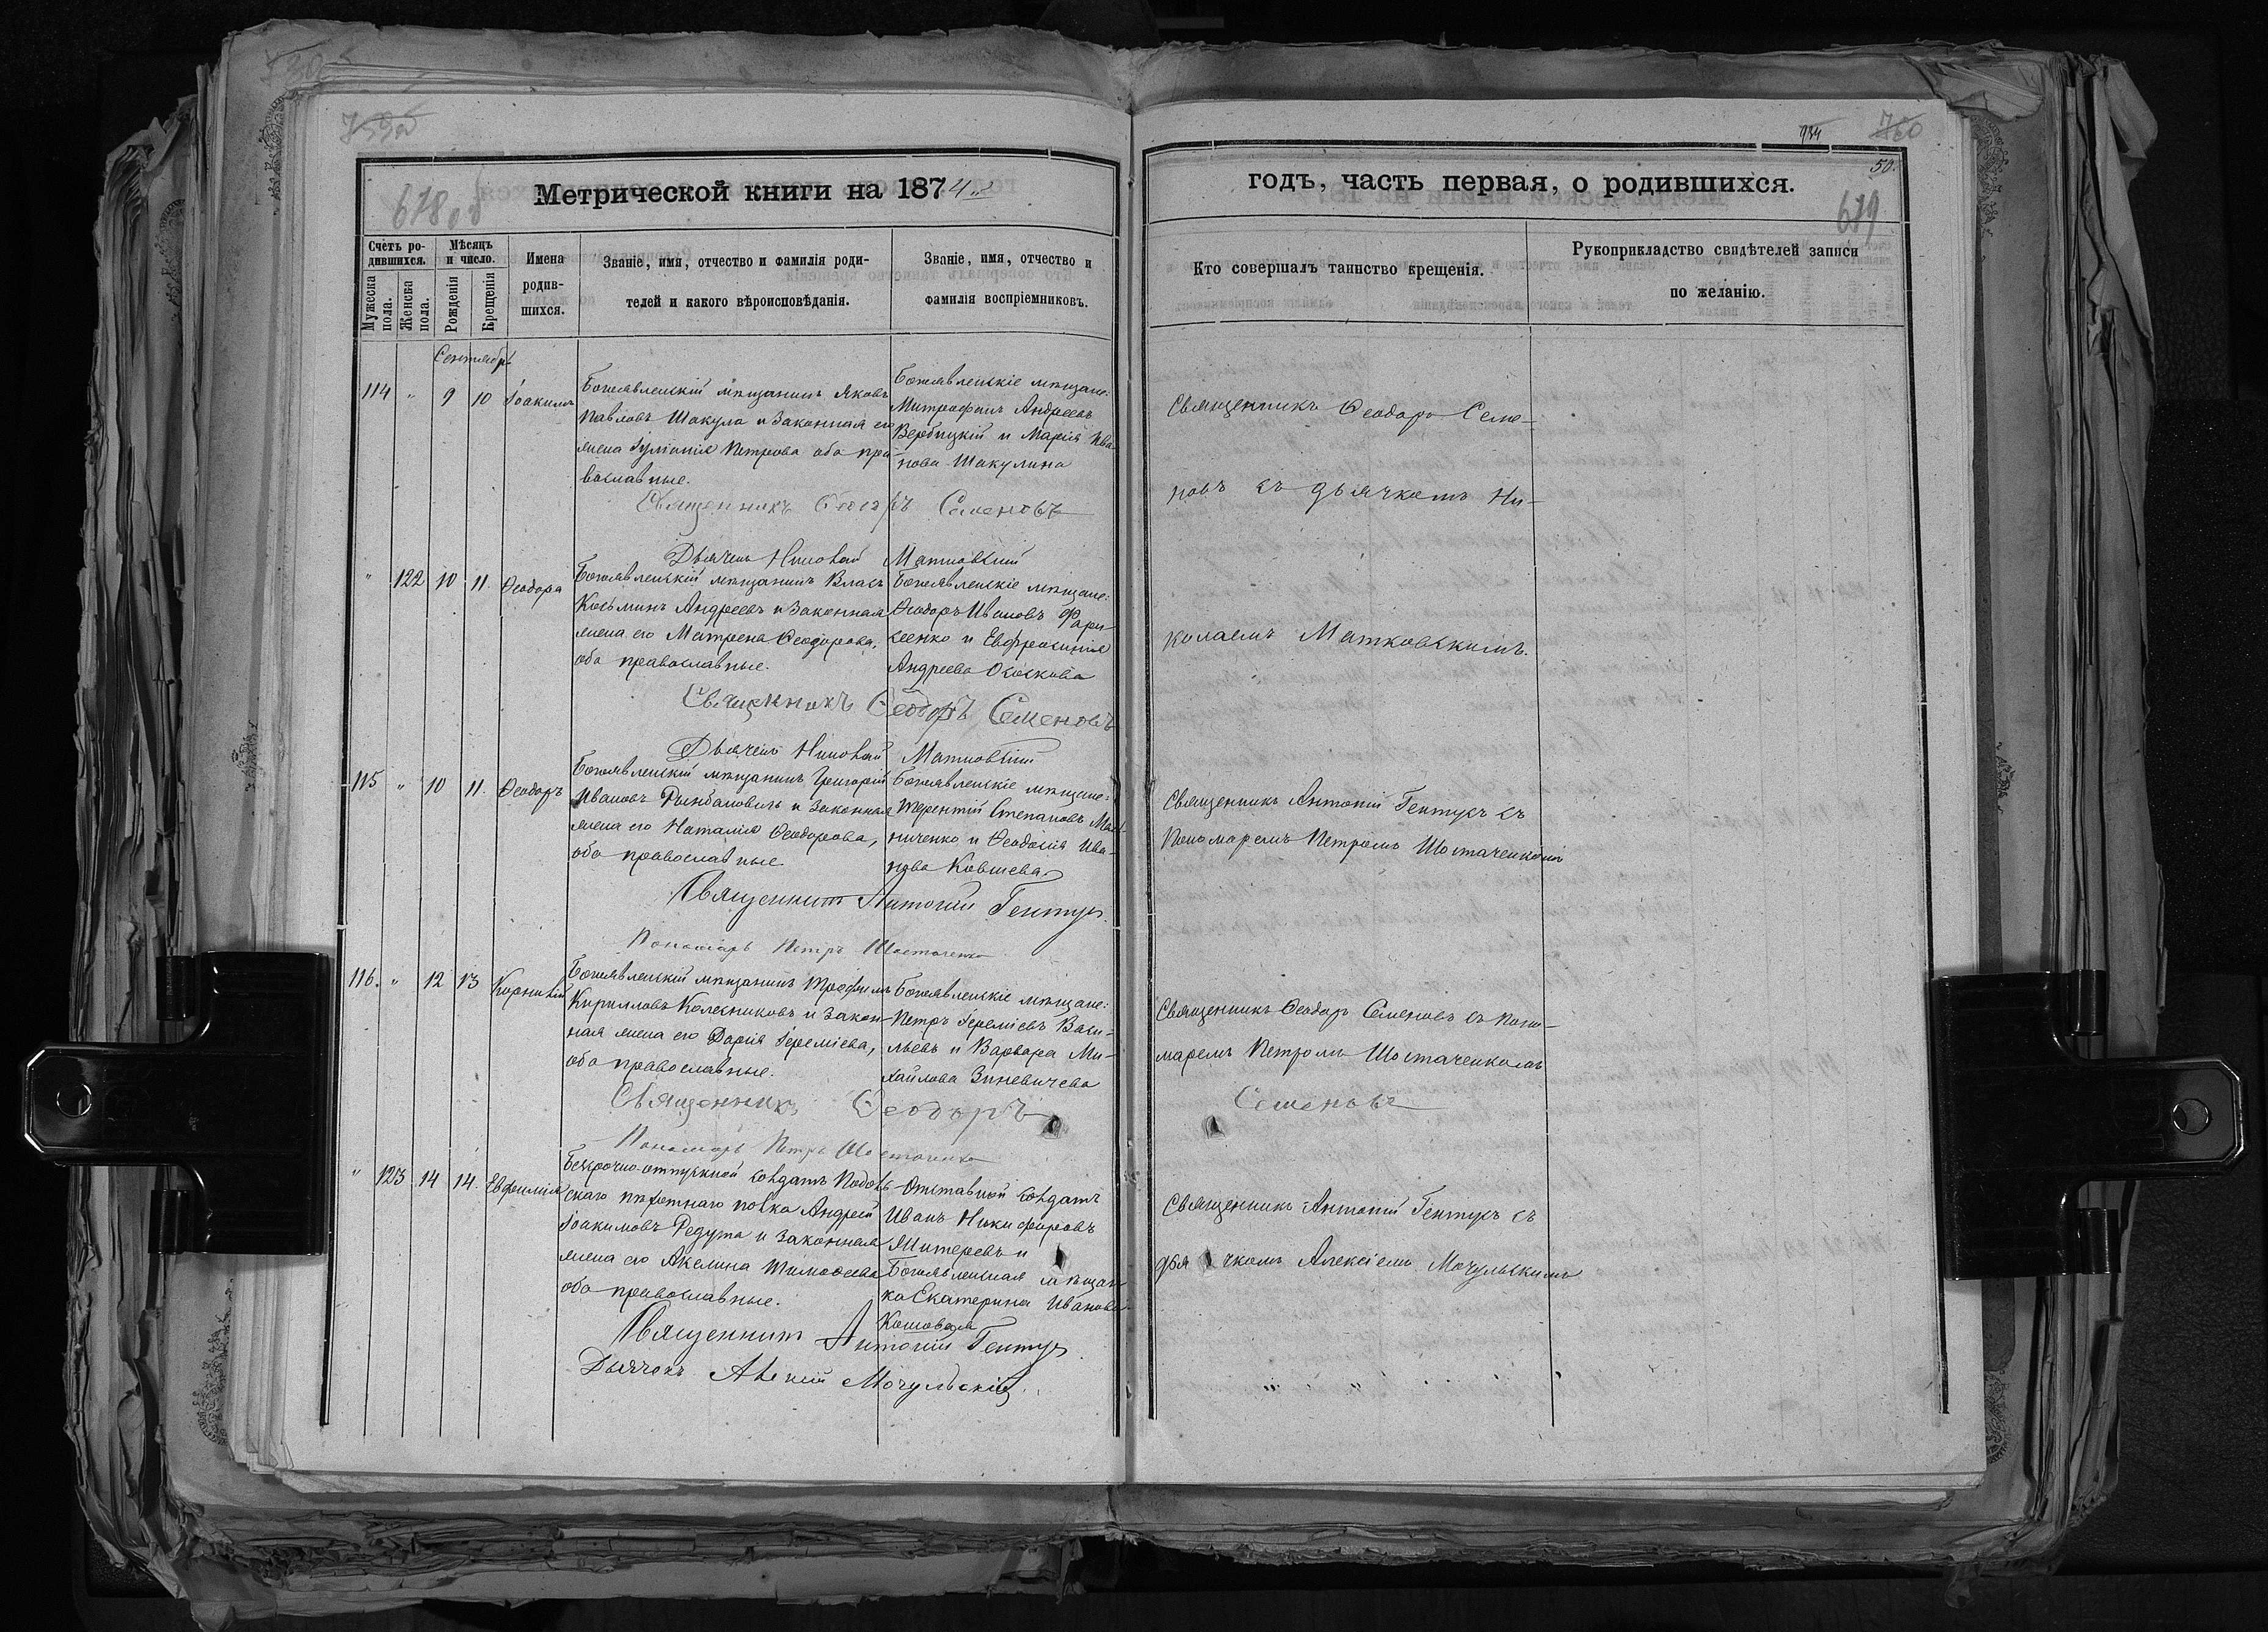 759об
934
760
50.
678об
679
Метрической книги на 1874й
годъ, часть первая, о родившихся.
Счетъ родившихся.
Мужеска пола.
Женска пола.
Мѣсяцъ и число.
Рожденія
Крещенія
Имена родившихся.
Званіе, имя, отчество и фамилія родителей и какого вѣроисповѣданія.
Званіе, имя, отчество и фамилія воспріемниковъ.
Кто совершалъ таинство крещенія.
Рукоприкладство свидѣтелей записи по желанію.
Сентябрь
114 " 9 10 Іоакимъ
Богоявленскій мѣщанинъ Яковъ
Павловъ Шакула и законная его
жена Іуліанія Петрова оба пра-
вославные.
Богоявленскіе мѣщане:
Митрофанъ Андреевъ
Вербицкій и Марія Ива-
нова Шакулина
Священникъ Ѳеодоръ Семе-
новъ съ дьячкомъ Ни-
колаемъ Матковскимъ.
Священникъ Ѳеодоръ Семеновъ
Дьячекъ Николай Матковскій
" 122 10 11. Ѳеодора
Богоявленскій мѣщанинъ Власъ
Косьминъ Андреевъ и законная
жена его Матрена Ѳеодорова,
оба православные.
Богоявленскіе мѣщане:
Ѳеодоръ Ивановъ
и Евфросинія
Андреева
Священникъ Ѳеодоръ Семеновъ
Дьячекъ Николай Матковскій
115 " 10 11. Ѳеодоръ
Богоявленскій мѣщанинъ Григорій
Ивановъ и законная
жена его Наталія Ѳеодорова,
оба православные.
Богоявленскіе мѣщане:
Терентій Степановъ
ниченко и Ѳеодосія Ива-
нова Ковшева
Священникъ Антоній Гентухъ съ
Пономаремъ Петромъ Шостаченкомъ
Священникъ Антоній Гентухъ
Пономарь Петръ Шостаченко
116. " 12 13 Корнилій
Богоявленскій мѣщанинъ Трофимъ
Кирилловъ Колесниковъ и закон-
ная жена его Дарія Іереміева,
оба православные.
Богоявленскіе мѣщане:
Петръ Іереміевъ Васи-
льевъ и Варвара Ми-
хайлова Зиневичева
Священникъ Ѳеодоръ Семеновъ съ Поно-
маремъ Петромъ Шостаченкомъ
Священникъ Ѳеодоръ Семеновъ
Пономарь Петръ Шостаченко
" 123 14 14. Евфимія
Безсрочно-отпускной солдатъ Подоль-
скаго пѣхотнаго полка Андрей
Іоакимовъ Редута и законная
жена его Акелина Тимоѳеева
оба православные.
Отставной солдатъ
Иванъ Никифоровъ
Митеревъ и
Богоявленская мѣщан-
ка Екатерина Иванова
Кошовая
Священникъ Антоній Гентухъ съ
дьячкомъ Алексіемъ Мочульскимъ
Священникъ Антоній Гентухъ
Дьячокъ Алексій Мочульскій